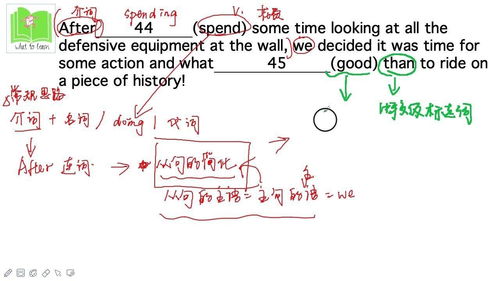 介词 spending V. 标志
After 44 (spend) some time looking at all the
defensive equipment at the wall, we decided it was time for
some action and what 45 (good) than to ride on
a piece of history!
what to learn
常规思路
介词 + 名词 / doing / 代词
After 连词. → 从句的简化 →
从句的主语 = 主句的主语 = we
比较级标志词